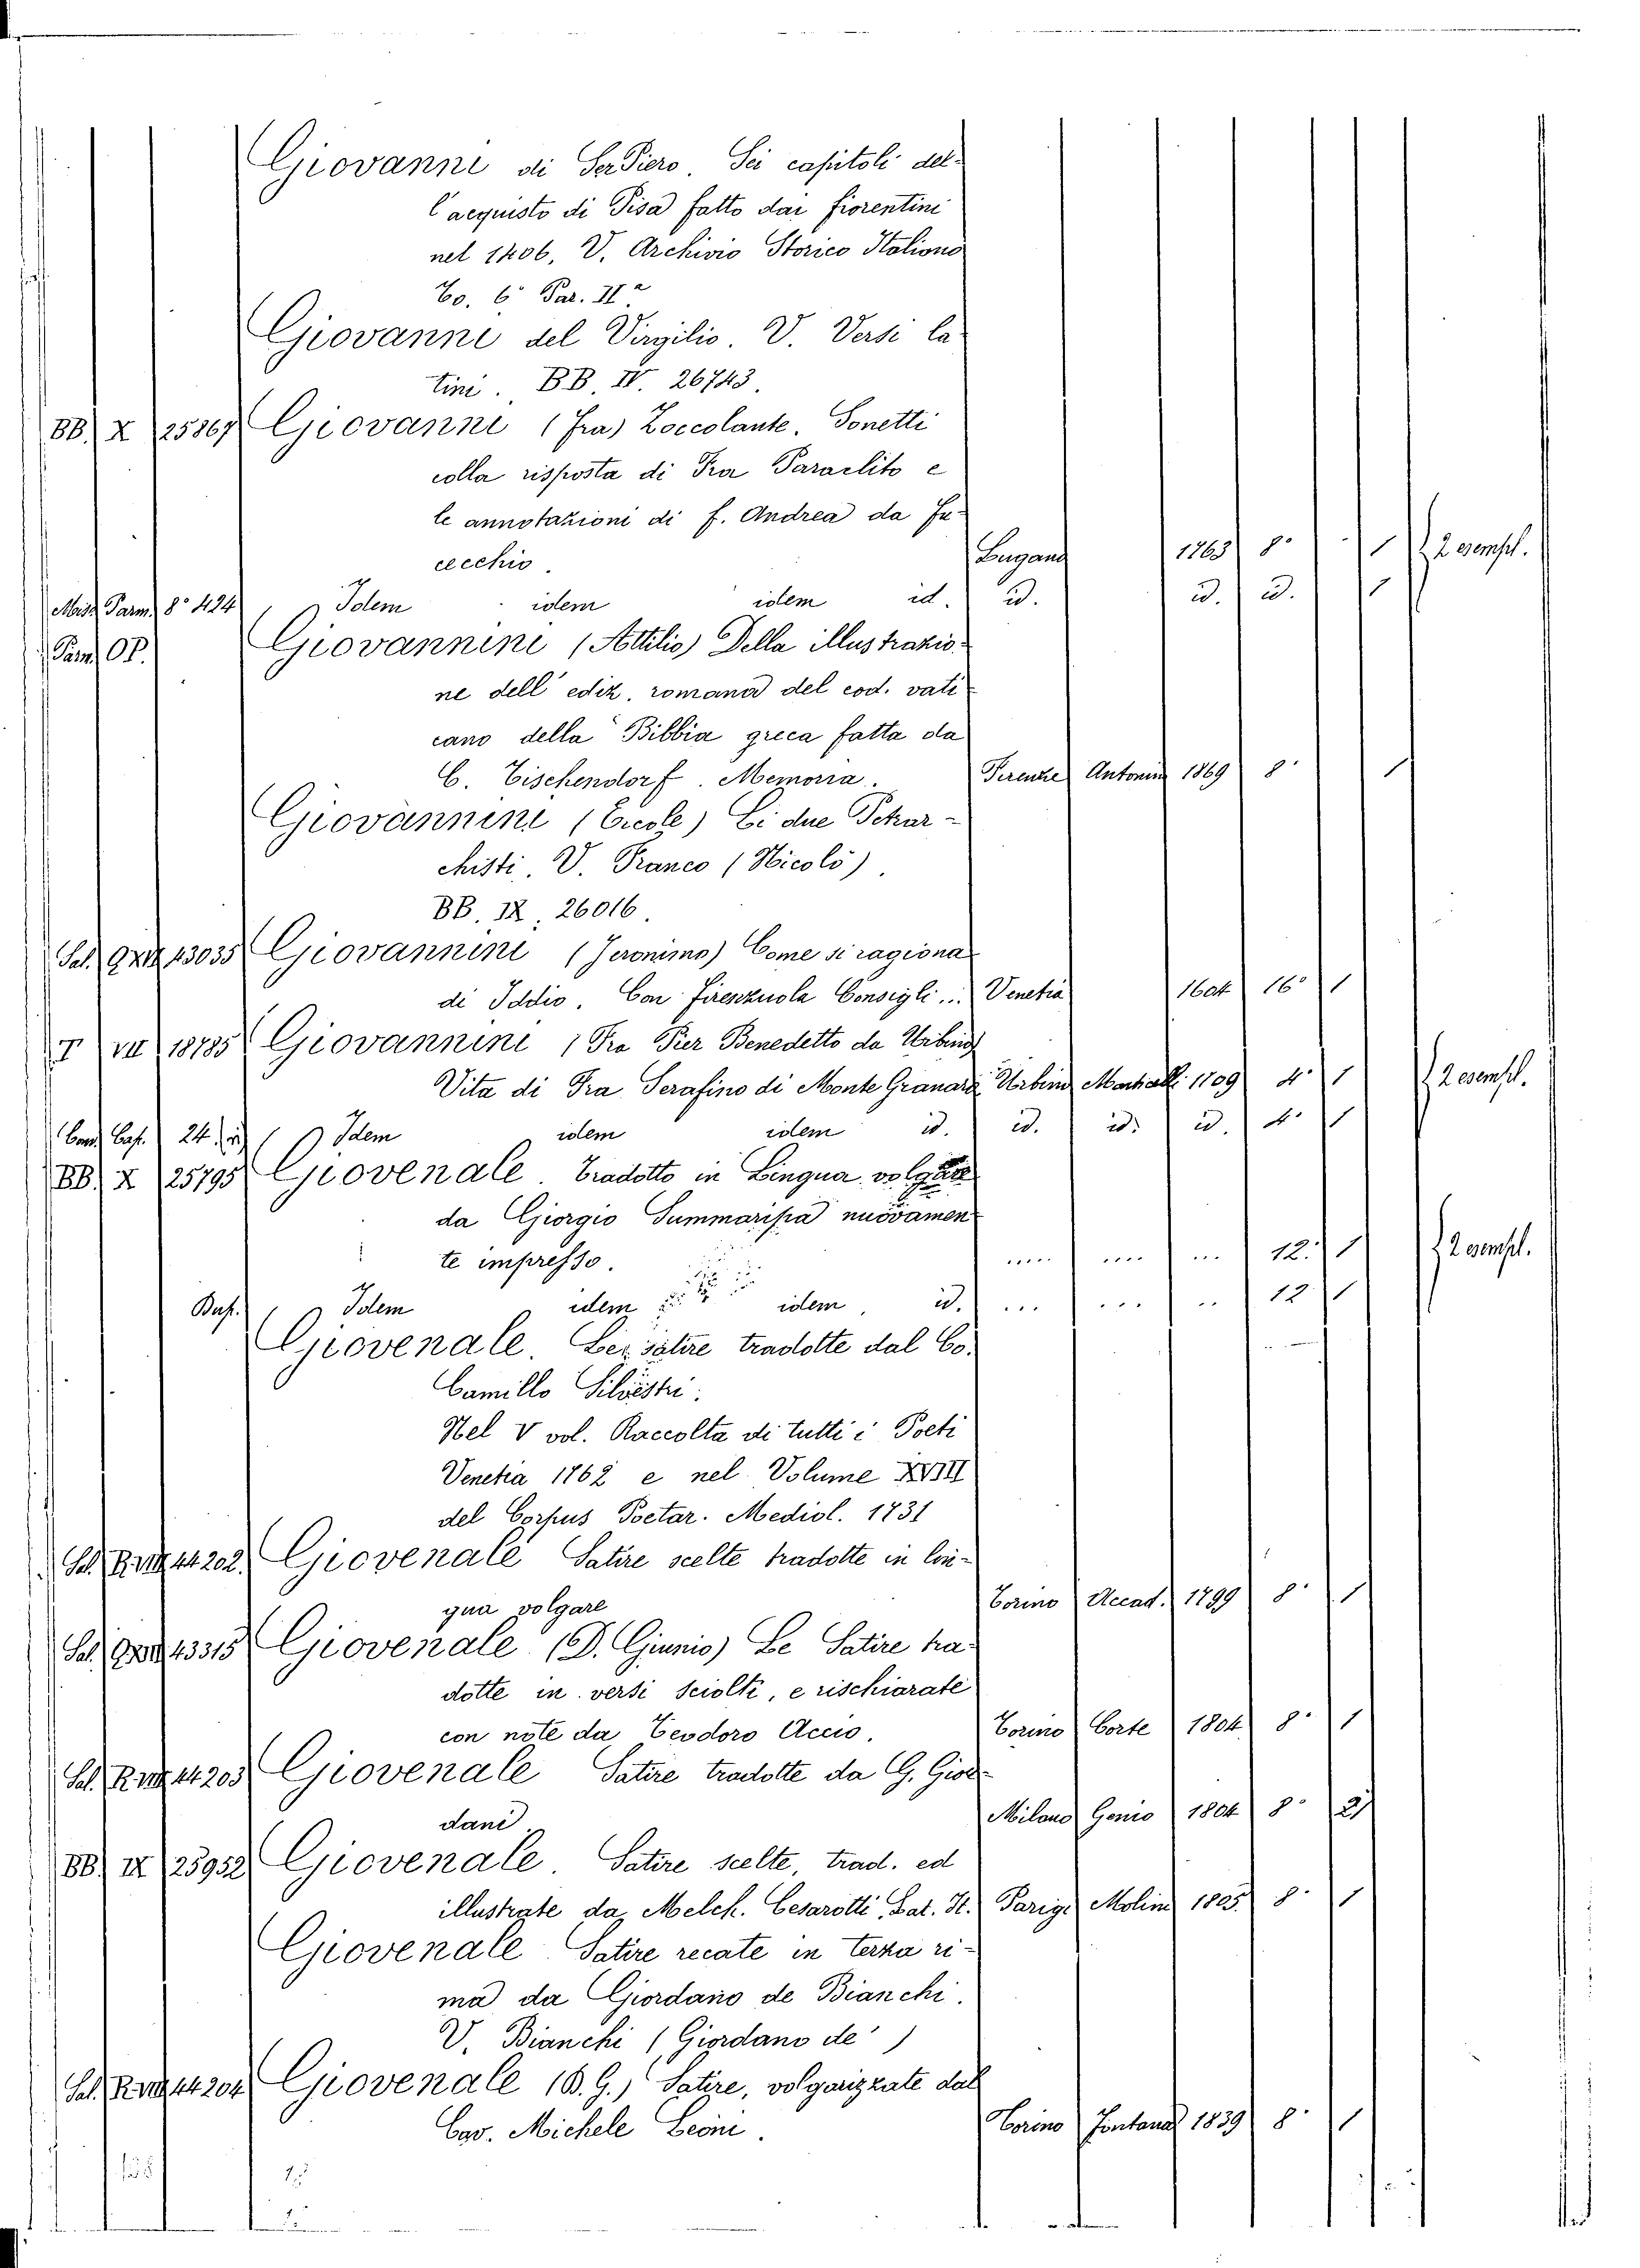 Giovanni di Ser Piero. Sei capitoli del-
l'acquisto di Pisa fatto dai fiorentini
nel 1406, V. Archivio Storico Italiano
To. 6° Par. IIª
Giovanni del Virgilio. V. Versi la-
tini. BB. IV. 26743.
BB. X 25867 Giovanni (Fra) Zoccolante. Sonetti
colla risposta di Fra Paraclito e
le annotazioni di f. Andrea da Fu-
cecchio. Lugano 1765 8° 1 2 esempl.
Misc. Parm. 8° 424 Idem idem idem id. id. id. id. 1
Parm. OP. Giovannini (Attilio) Della illustrazio-
ne dell' ediz. romana del cod. vati-
cano della Bibbia greca fatta da
C. Tischendorf. Memoria. Firenze Antonin 1869 8° 1
Giovannini (Ercole) Li due Petrar-
chisti. V. Franco (Nicolò).
BB. IX. 26016.
Sal. 13035 Giovannini (Jeronimo) Come si ragiona
di Iddio. Con Firenzuola Consigli... Venetia 1604 16° 1
T VII 18785 Giovannini (Fra Pier Benedetto da Urbino)
Vita di Fra Serafino di Monte Granara Urbino 1709 4° 1 2 esempl.
24 Idem idem idem id. id. id. id. 4° 1
BB. X 25795 Giovenale. Tradotto in Lingua volgare
da Giorgio Summaripa nuovamen-
te impresso. ..... .... ... 12. 1 2 esempl.
Idem idem idem. id. ... ... .. 12 1
Giovenale. Le satire tradotte dal Co.
Camillo Silvestri.
Nel V vol. Raccolta di tutti i Poeti
Venetia 1762 e nel Volume XVIII
del Corpus Poetar. Mediol. 1731
Sal. R. VIII 44202. Giovenale Satire scelte tradotte in lin-
gua volgare Torino Accad. 1799 8° 1
Sal. 43315 Giovenale (D. Giunio) Le Satire tra-
dotte in versi sciolti, e rischiarate
con note da Teodoro Accio. Torino Corte 1804 8° 1
Sal. R. VIII 44203 Giovenale Satire tradotte da G. Gior-
dani. Milano Genio 1804 8° 2
BB. IX 25952 Giovenale. Satire scelte, trad. ed
illustrate da Melch. Cesarotti, Lat. It. Parigi Molini 1805. 8° 1
Giovenale Satire recate in terza ri-
ma da Giordano de Bianchi.
V. Bianchi (Giordano de')
Sal. R. VIII 44204 Giovenale (D. G.) Satire, volgarizzate dal
Cav. Michele Leoni. Torino Fontana 1839 8° 1